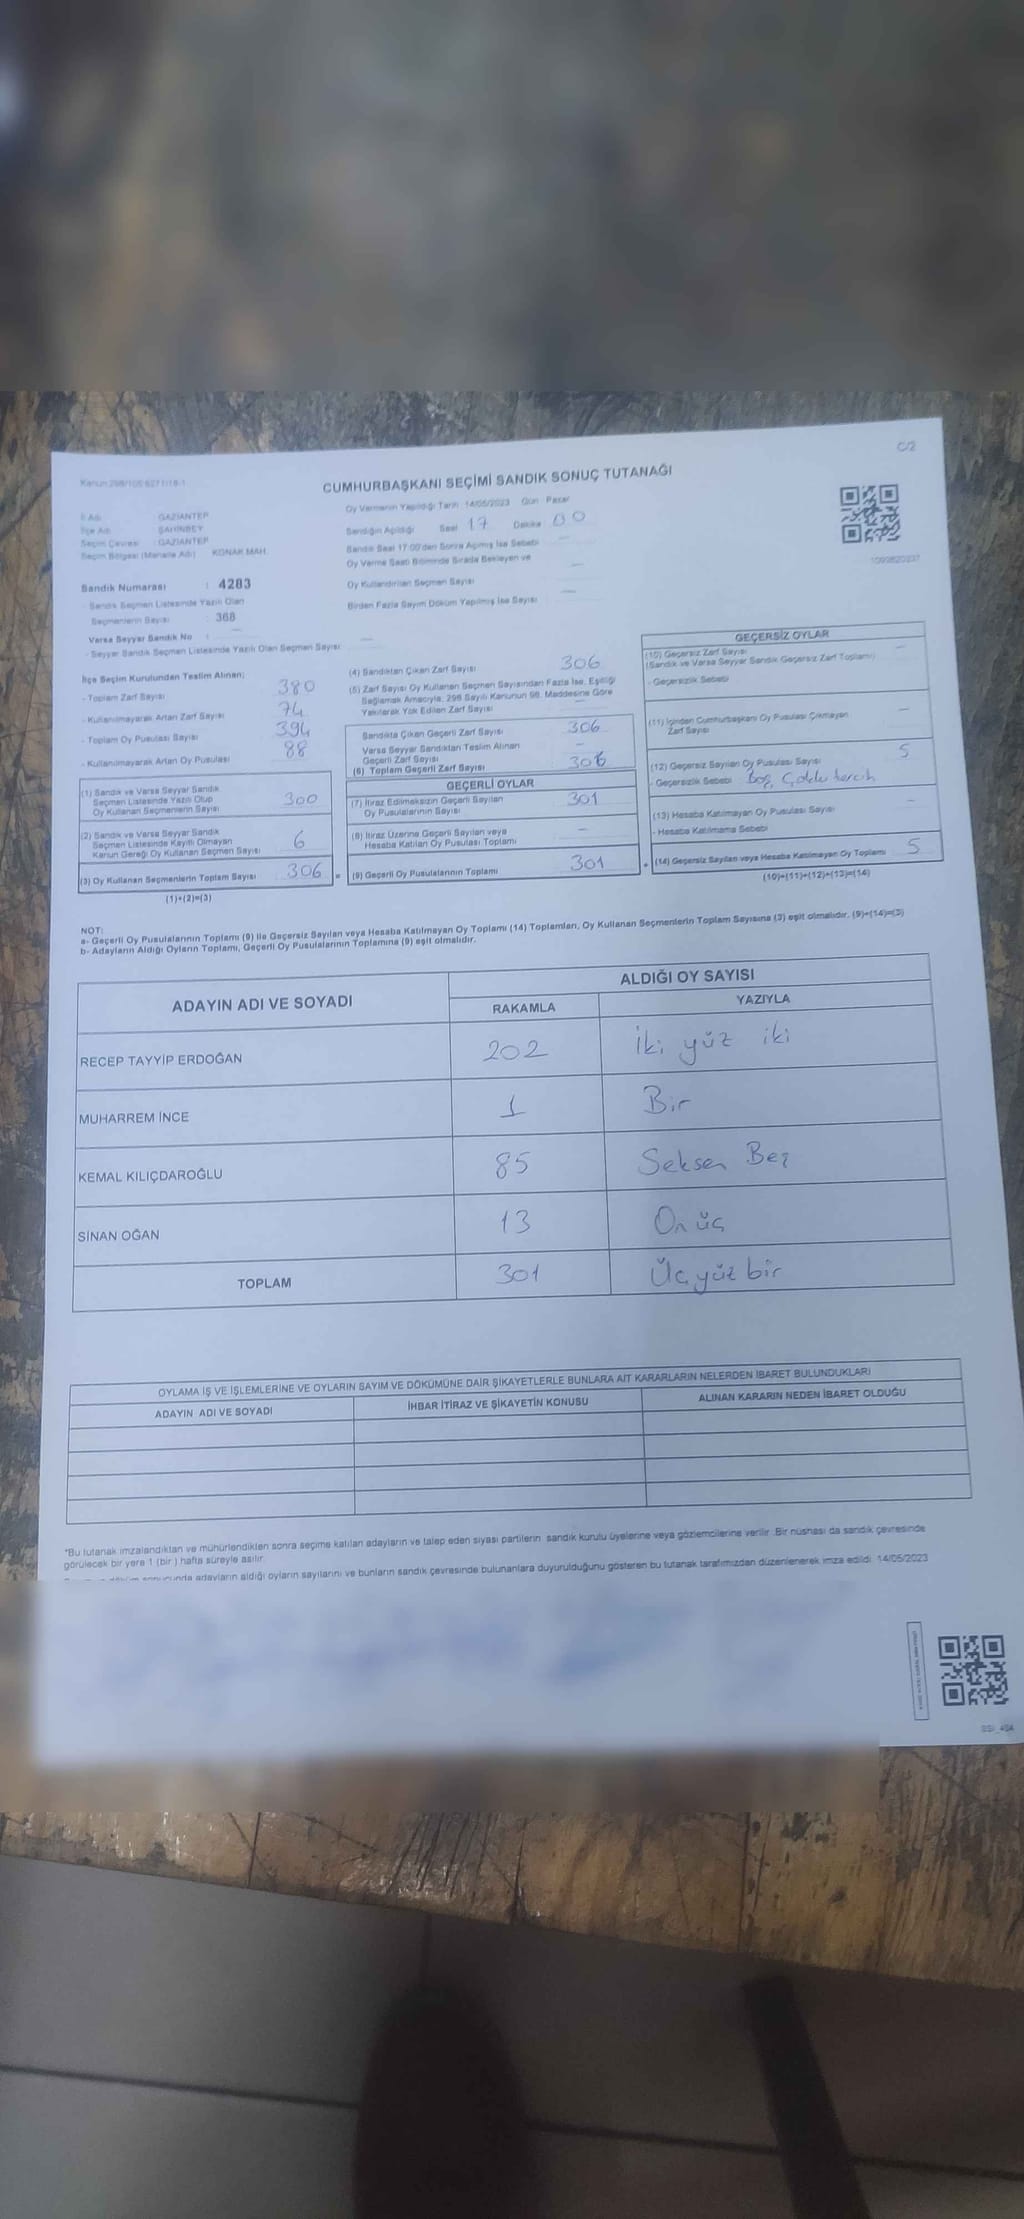 C/2
CUMHURBAŞKANI SEÇİMİ SANDIK SONUÇ TUTANAĞI
İl Adı : GAZİANTEP
İlçe Adı : ŞAHİNBEY
Seçim Çevresi : GAZİANTEP
Seçim Bölgesi (Mahalle Adı) KONAK MAH.
Sandık Numarası : 4283
- Sandık Seçmen Listesinde Yazılı Olan
Seçmenlerin Sayısı : 368
Varsa Seyyar Sandık No : —
- Seyyar Sandık Seçmen Listesinde Yazılı Olan Seçmen Sayısı —
Oy Vermenin Yapıldığı Tarih 14/05/2023 Gün Pazar
Sandığın Açıldığı Saat 17 Dakika 00
Sandık Saat 17:00'den Sonra Açılmış İse Sebebi —
Oy Verme Saati Bitiminde Sırada Bekleyen ve
Oy Kullandırılan Seçmen Sayısı —
Birden Fazla Sayım Döküm Yapılmış İse Sayısı —
1099820237
İlçe Seçim Kurulundan Teslim Alınan;
- Toplam Zarf Sayısı 380
- Kullanılmayarak Artan Zarf Sayısı 74
- Toplam Oy Pusulası Sayısı 394
- Kullanılmayarak Artan Oy Pusulası 88
(1) Sandık ve Varsa Seyyar Sandık
Seçmen Listesinde Yazılı Olup
Oy Kullanan Seçmenlerin Sayısı 300
(2) Sandık ve Varsa Seyyar Sandık
Seçmen Listesinde Kayıtlı Olmayan
Kanun Gereği Oy Kullanan Seçmen Sayısı 6
(3) Oy Kullanan Seçmenlerin Toplam Sayısı 306 =
(1)+(2)=(3)
(4) Sandıktan Çıkan Zarf Sayısı 306
(5) Zarf Sayısı Oy Kullanan Seçmen Sayısından Fazla İse, Eşitliği
Sağlamak Amacıyla; 298 Sayılı Kanunun 98. Maddesine Göre
Yakılarak Yok Edilen Zarf Sayısı —
Sandıkta Çıkan Geçerli Zarf Sayısı 306
Varsa Seyyar Sandıktan Teslim Alınan
Geçerli Zarf Sayısı —
(6) Toplam Geçerli Zarf Sayısı 306
GEÇERLİ OYLAR
(7) İtiraz Edilmeksizin Geçerli Sayılan
Oy Pusulalarının Sayısı 301
(8) İtiraz Üzerine Geçerli Sayılan veya
Hesaba Katılan Oy Pusulası Toplamı —
(9) Geçerli Oy Pusulalarının Toplamı 301 +
GEÇERSİZ OYLAR
(10) Geçersiz Zarf Sayısı —
(Sandık ve Varsa Seyyar Sandık Geçersiz Zarf Toplamı)
- Geçersizlik Sebebi
(11) İçinden Cumhurbaşkanı Oy Pusulası Çıkmayan
Zarf Sayısı —
(12) Geçersiz Sayılan Oy Pusulası Sayısı 5
- Geçersizlik Sebebi Boş, Çoklu tercih
(13) Hesaba Katılmayan Oy Pusulası Sayısı —
- Hesaba Katılmama Sebebi
(14) Geçersiz Sayılan veya Hesaba Katılmayan Oy Toplamı 5
(10)+(11)+(12)+(13)=(14)
NOT:
a- Geçerli Oy Pusulalarının Toplamı (9) ile Geçersiz Sayılan veya Hesaba Katılmayan Oy Toplamı (14) Toplamları, Oy Kullanan Seçmenlerin Toplam Sayısına (3) eşit olmalıdır. (9)+(14)=(3)
b- Adayların Aldığı Oyların Toplamı, Geçerli Oy Pusulalarının Toplamına (9) eşit olmalıdır.
ADAYIN ADI VE SOYADI
ALDIĞI OY SAYISI
RAKAMLA YAZIYLA
RECEP TAYYİP ERDOĞAN 202 İki yüz iki
MUHARREM İNCE 1 Bir
KEMAL KILIÇDAROĞLU 85 Seksen Beş
SİNAN OĞAN 13 On üç
TOPLAM 301 Üç yüz bir
OYLAMA İŞ VE İŞLEMLERİNE VE OYLARIN SAYIM VE DÖKÜMÜNE DAİR ŞİKAYETLERLE BUNLARA AİT KARARLARIN NELERDEN İBARET BULUNDUKLARI
ADAYIN ADI VE SOYADI İHBAR İTİRAZ VE ŞİKAYETİN KONUSU ALINAN KARARIN NEDEN İBARET OLDUĞU
*Bu tutanak imzalandıktan ve mühürlendikten sonra seçime katılan adayların ve talep eden siyasi partilerin sandık kurulu üyelerine veya gözlemcilerine verilir. Bir nüshası da sandık çevresinde
görülecek bir yere 1 (bir) hafta süreyle asılır.
sonucunda adayların aldığı oyların sayılarını ve bunların sandık çevresinde bulunanlara duyurulduğunu gösteren bu tutanak tarafımızdan düzenlenerek imza edildi. 14/05/2023